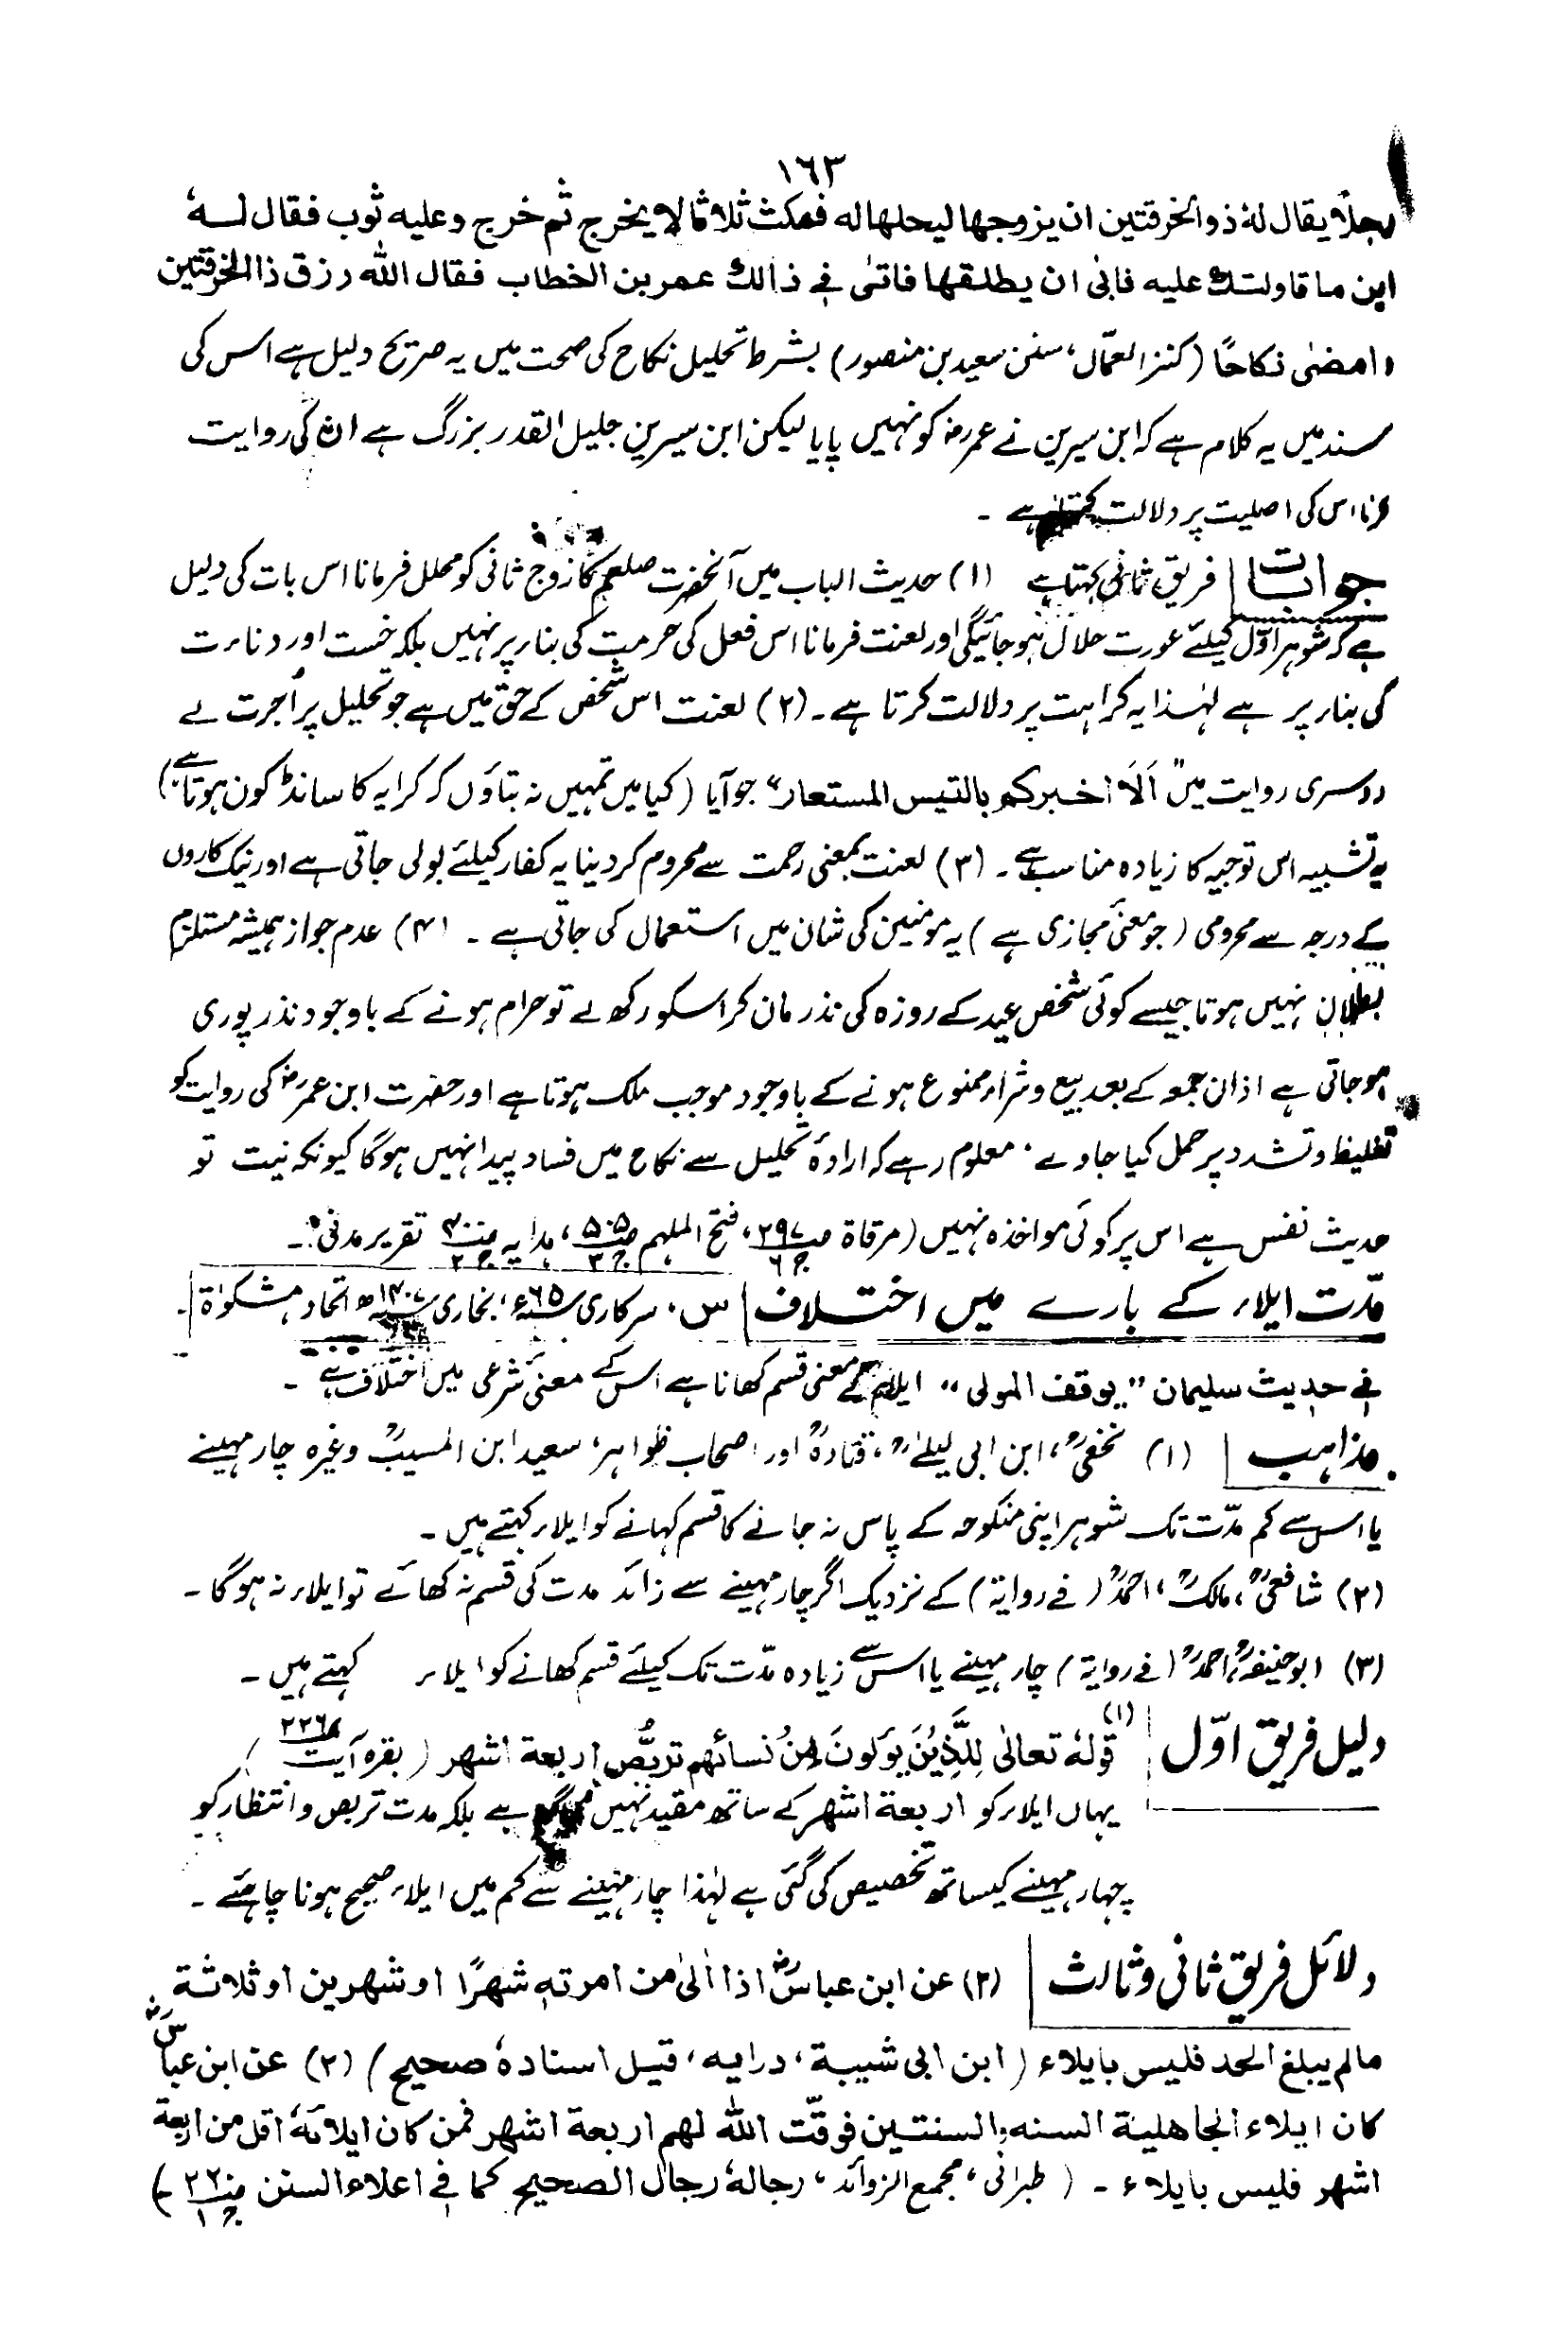 ١٦٣
رجلاً يقال لهٗ ذوالخرقتين ان يزوجها ليحلها له فمكث ثلاثا لا يخرج ثم خرج وعليه ثوب فقال لــهٗ
اين ما قاولتك عليه فابى ان يطلقها فاتىٰ فے ذالك عمر بن الخطاب فقال اللّٰه رزق ذا الخرقتين
وامضىٰ نكاحًا (کنز العمّال، سنن سعید بن منصور) بشرط تحلیل نکاح کی صحت میں یہ صریح دلیل ہے اس کی
سند میں یہ کلام ہے کہ ابن سیرین نے عمرؓ کو نہیں پایا لیکن ابن سیرین جلیل القدر بزرگ ہے ان کی روایت
کرنا اس کی اصلیت پر دلالت ہے ۔
جوابات فریق ثانی کہتا ہے (۱) حدیث الباب میں آنحضرت صلعم کا زوج ثانی کو محلل فرمانا اس بات کی دلیل
ہے کہ شوہر اوّل کیلئے عورت حلال ہو جائیگی اور لعنت فرمانا اس فعل کی حرمت کی بنار پر نہیں بلکہ خست اور دنارت
کی بنار پر ہے لہٰذا یہ کراہت پر دلالت کرتا ہے ۔ (۲) لعنت اس شخص کے حق میں ہے جو تحلیل پر اُجرت لے
دوسری روایت میں "اَلَا اخبركم بالتيس المستعار" جو آیا (کیا میں تمہیں نہ بتاؤں کہ کرایہ کا سانڈ کون ہوتا ہے)
یہ تشبیہ اس توجیہ کا زیادہ مناسب ہے ۔ (۳) لعنت بمعنی رحمت سے محروم کر دینا یہ کفار کیلئے بولی جاتی ہے اور نیک کاروں
کے درجہ سے محرومی (جو معنیٔ مجازی ہے) یہ مومنین کی شان میں استعمال کی جاتی ہے ۔ (۴) عدم جواز ہمیشہ مستلزم
بطلان نہیں ہوتا جیسے کوئی شخص عید کے روزہ کی نذر مان کر اسکو رکھ لے تو حرام ہونے کے باوجود نذر پوری
ہو جاتی ہے اذان جمعہ کے بعد بیع و شراء ممنوع ہونے کے باوجود موجب ملک ہوتا ہے اور حضرت ابن عمرؓ کی روایت کو
تغلیظ و تشدد پر حمل کیا جاوے ۰ معلوم رہے کہ ارادۂ تحلیل سے نکاح میں فساد پیدا نہیں ہوگا کیونکہ نیت تو
حدیث نفس ہے اس پر کوئی مواخذہ نہیں (مرقاۃ ص ۲۹۷ ج ۶، فتح الملہم ص ۵۰۵ ج ۳، ہدایہ ص ۴۰۰ ج ۲ تقریر مدنی۔
مدّت ایلاء کے بارے میں اختلاف س، سرکاری سنہ ۶۵ء، بخاری سنہ ۱۴۰۷ھ اتحاد مشکوٰۃ
فے حدیث سلیمان "یوقف المولی" ایلاء کے معنی قسم کھانا ہے اس کے معنیٔ شرعی میں اختلاف ہے ۔
مذاہب (۱) نخعیؒ، ابن ابی لیلیٰؒ، قتادہؒ اور اصحاب ظواہر، سعید ابن المسیبؒ وغیرہ چار مہینے
یا اس سے کم مدّت تک شوہر اپنی منکوحہ کے پاس نہ جانے کا قسم کہانے کو ایلاء کہتے ہیں ۔
(۲) شافعیؒ، مالکؒ، احمدؒ (فے روایۃ) کے نزدیک اگر چار مہینے سے زائد مدت کی قسم نہ کھائے تو ایلاء نہ ہوگا ۔
(۳) ابوحنیفہؒ، احمدؒ (فے روایۃ) چار مہینے یا اس سے زیادہ مدّت تک کیلئے قسم کھانے کو ایلاء کہتے ہیں ۔
دلیل فریق اوّل (۱) قولهٗ تعالىٰ لِلَّذِيْنَ يُؤلونَ مِنْ نسائهم تربُّص اربعة اشهر (بقرہ آیت ۲۲۶)
یہاں ایلاء کو اربعة اشهر کے ساتھ مقید نہیں ہے بلکہ مدت تربص و انتظار کو
چہار مہینے کیساتھ تخصیص کی گئی ہے لہٰذا چار مہینے سے کم میں ایلاء صحیح ہونا چاہئے ۔
دلائل فریق ثانی و ثالث (۲) عن ابن عباسؓ اذا اٰلیٰ من امرتهٖ شهرًا او شهرين او ثلاثة
مالم يبلغ الحد فليس بايلاء (ابن ابی شیبة، درایه، قیل اسنادهٗ صحیح) (۲) عن ابن عباسؓ
كان ايلاء الجاهلية السنه والسنتين فوقّت اللّٰه لهم اربعة اشهر فمن كان ايلائهٗ اقل من اربعة
اشهر فليس بايلاء ۔ (طبرانی، مجمع الزوائد، رجالهٗ رجال الصحیح کما فے اعلاء السنن ص ۲۲ ج ۱)